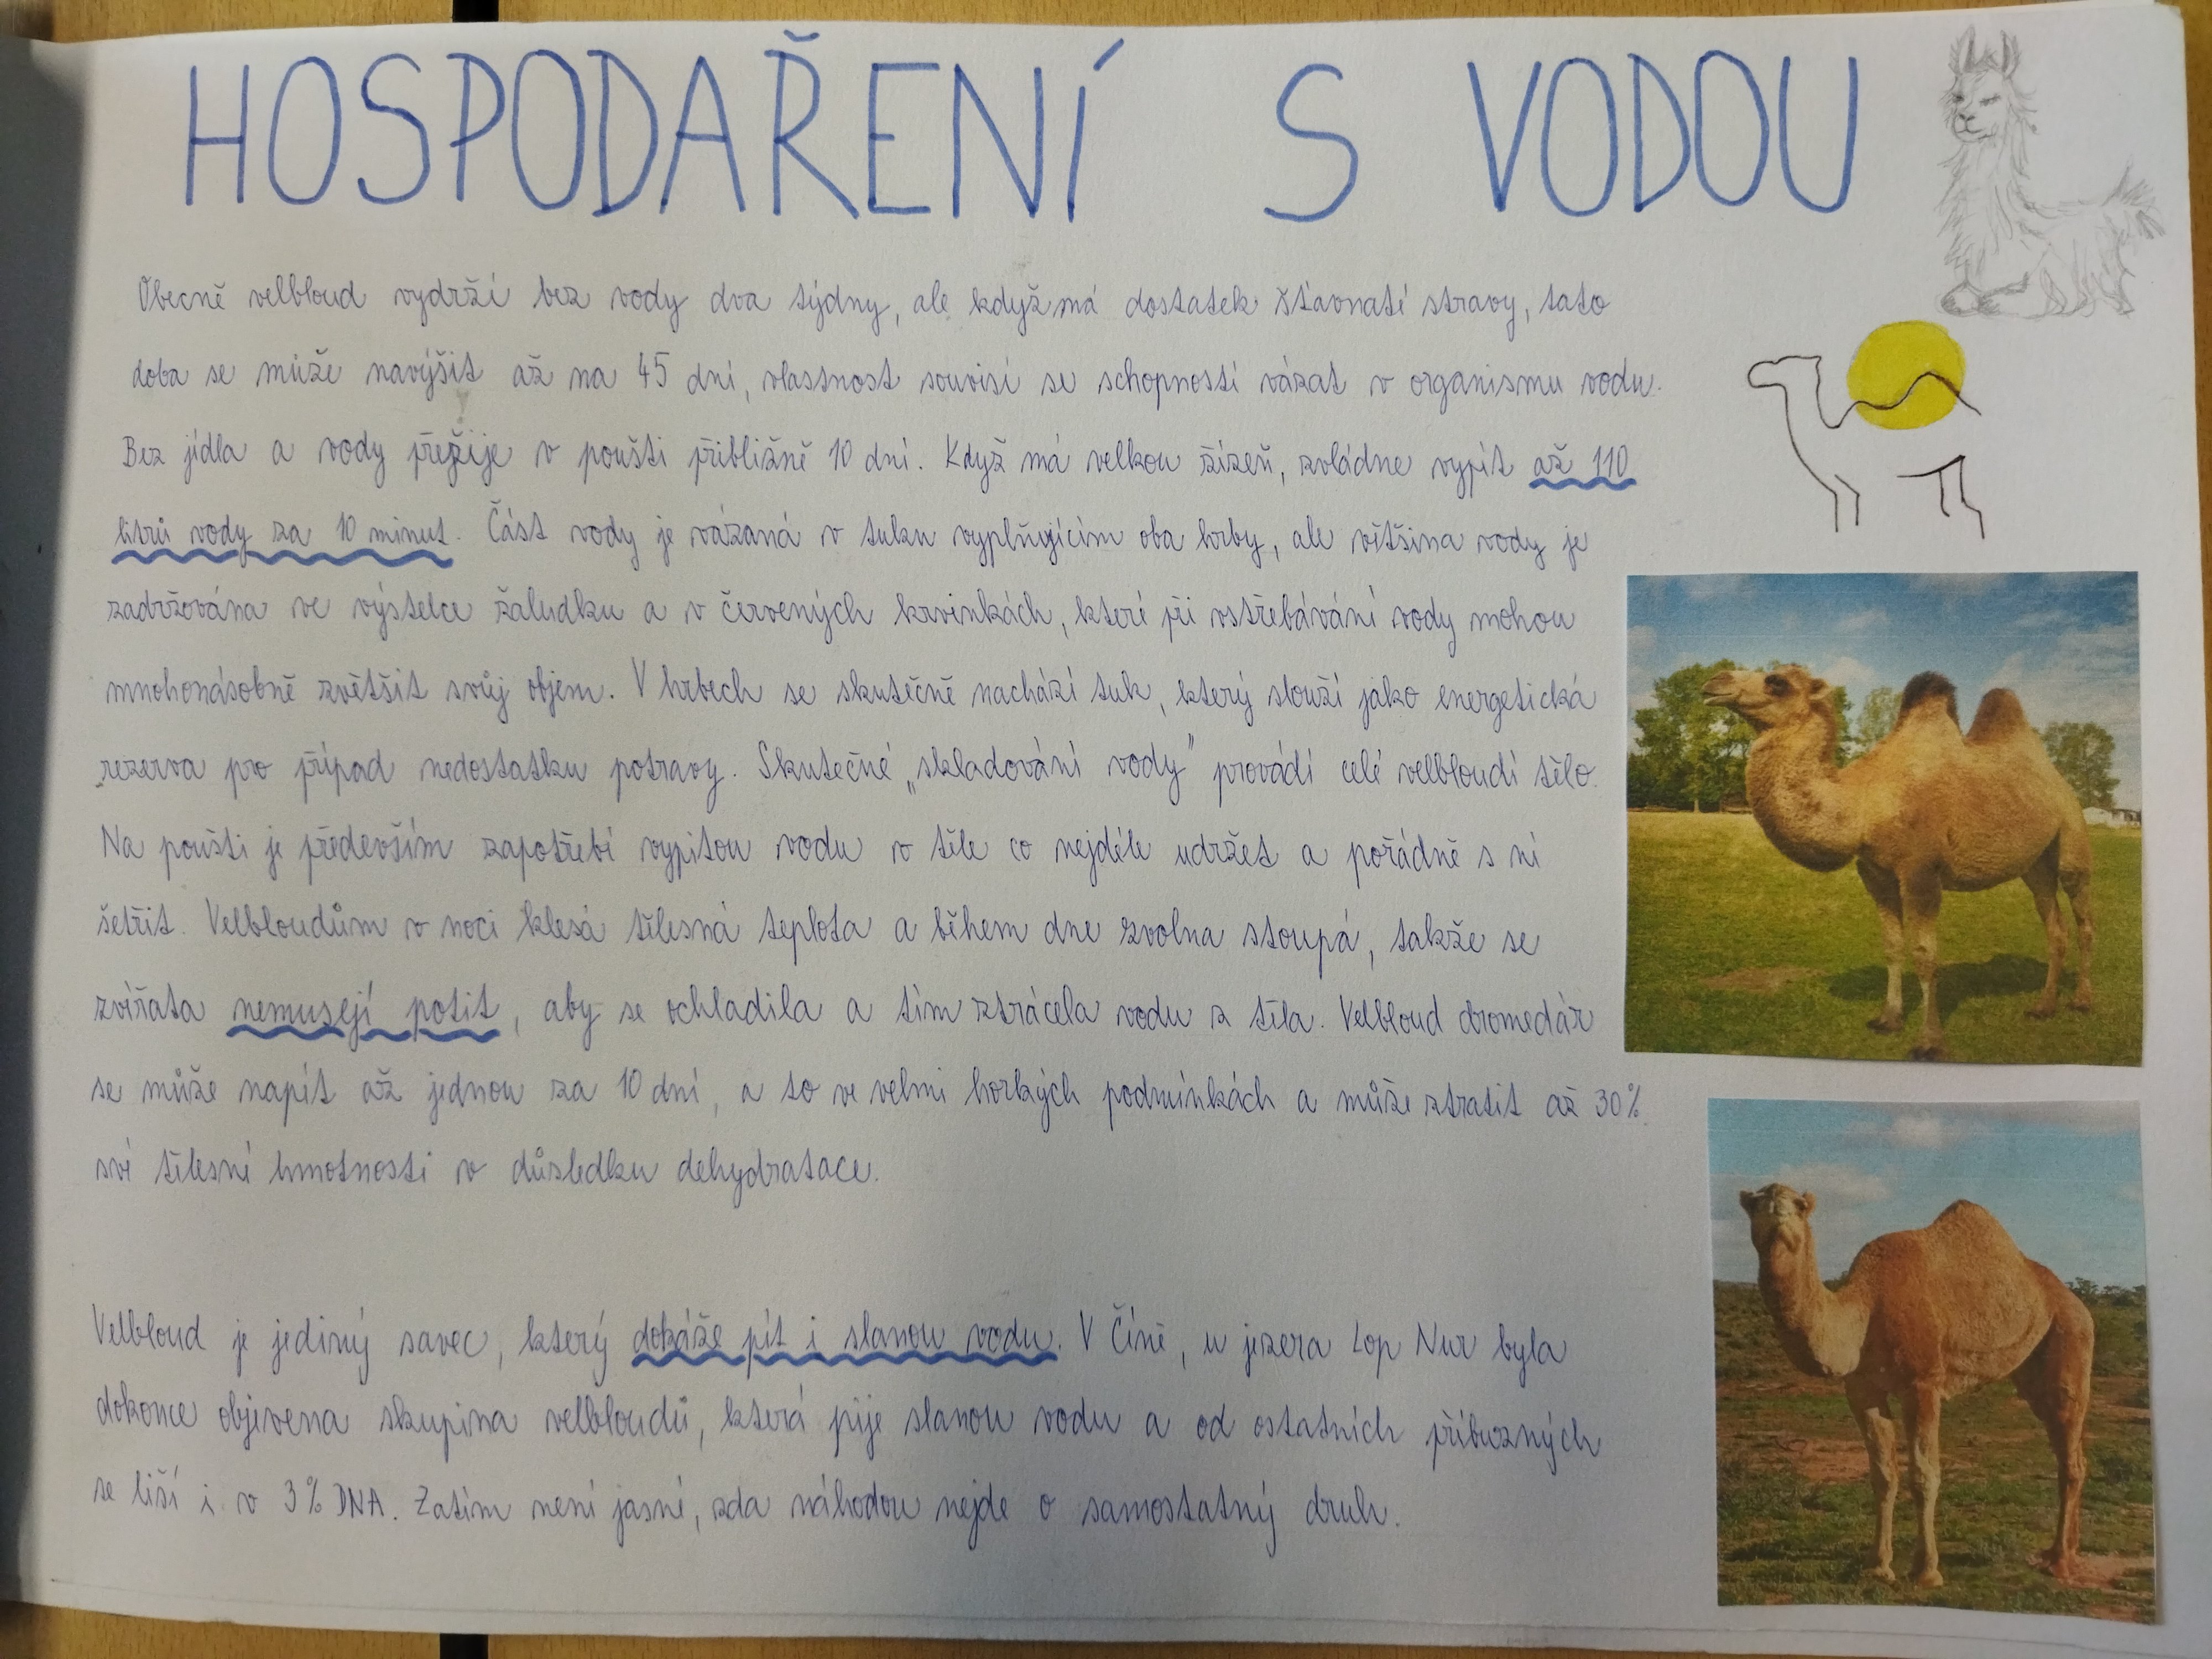 HOSPODAŘENÍ S VODOU
Obecně velbloud vydrží bez vody dva týdny, ale když má dostatek šťavnaté stravy, tato
doba se může navýšit až na 45 dní, vlastnost souvisí se schopností vázat v organismu vodu.
Bez jídla a vody přežije v poušti přibližně 10 dní. Když má velkou žízeň, zvládne vypít až 110
litrů vody za 10 minut. Část vody je vázaná v tuku vyplňujícím oba hrby, ale většina vody je
zadržována ve výstelce žaludku a v červených krvinkách, které při vstřebávání vody mohou
mnohonásobně zvětšit svůj objem. V hrbech se skutečně nachází tuk, který slouží jako energetická
rezerva pro případ nedostatku potravy. Skutečné „skladování vody" provádí celé velbloudí tělo.
Na poušti je především zapotřebí vypitou vodu v těle co nejdéle udržet a pořádně s ní
šetřit. Velbloudům v noci klesá tělesná teplota a během dne zvolna stoupá, takže se
zvířata nemusejí potit, aby se ochladila a tím ztrácela vodu z těla. Velbloud dromedár
se může napít až jednou za 10 dní, a to ve velmi horkých podmínkách a může ztratit až 30%
své tělesné hmotnosti v důsledku dehydratace.
Velbloud je jediný savec, který dokáže pít i slanou vodu. V Číně, u jezera Lop Nur byla
dokonce objevena skupina velbloudů, která pije slanou vodu a od ostatních příbuzných
se liší i v 3% DNA. Zatím není jasné, zda náhodou nejde o samostatný druh.